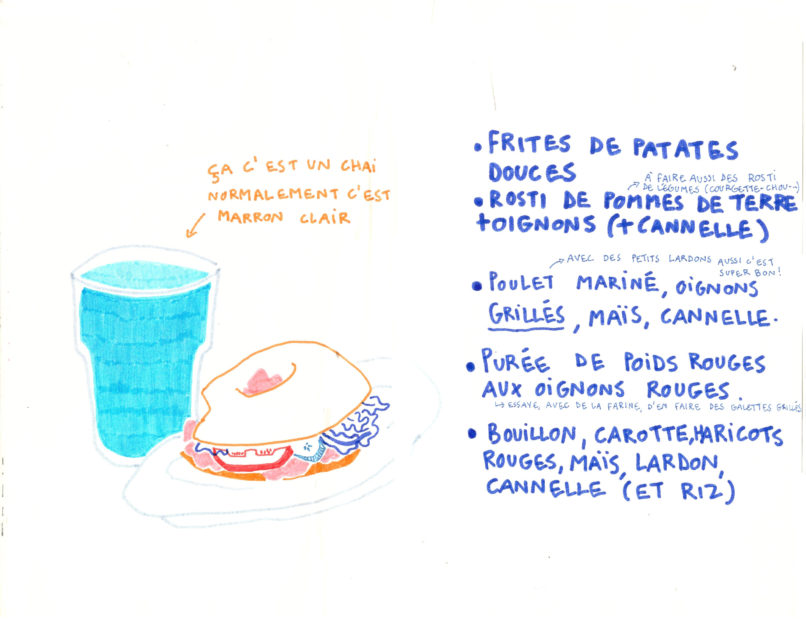 ÇA C'EST UN CHAï
NORMALEMENT C'EST
MARRON CLAIR
• FRITES DE PATATES
DOUCES
À FAIRE AUSSI DES ROSTI
DE LÉGUMES (COURGETTE-CHOU--)
• ROSTI DE POMMES DE TERRE
+OIGNONS (+CANNELLE)
AVEC DES PETITS LARDONS AUSSI C'EST
SUPER BON!
• POULET MARINÉ, OIGNONS
GRILLÉS, MAÏS, CANNELLE.
• PURÉE DE POIDS ROUGES
AUX OIGNONS ROUGES.
↳ ESSAYE, AVEC DE LA FARINE, D'EN FAIRE DES GALETTES GRILLÉS
• BOUILLON, CAROTTE, HARICOTS
ROUGES, MAÏS, LARDON,
CANNELLE (ET RIZ)